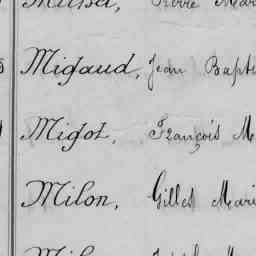 Pierre Mar
Migaud, Jean Bapti
Migot, François M
Milon, Gilles Mari